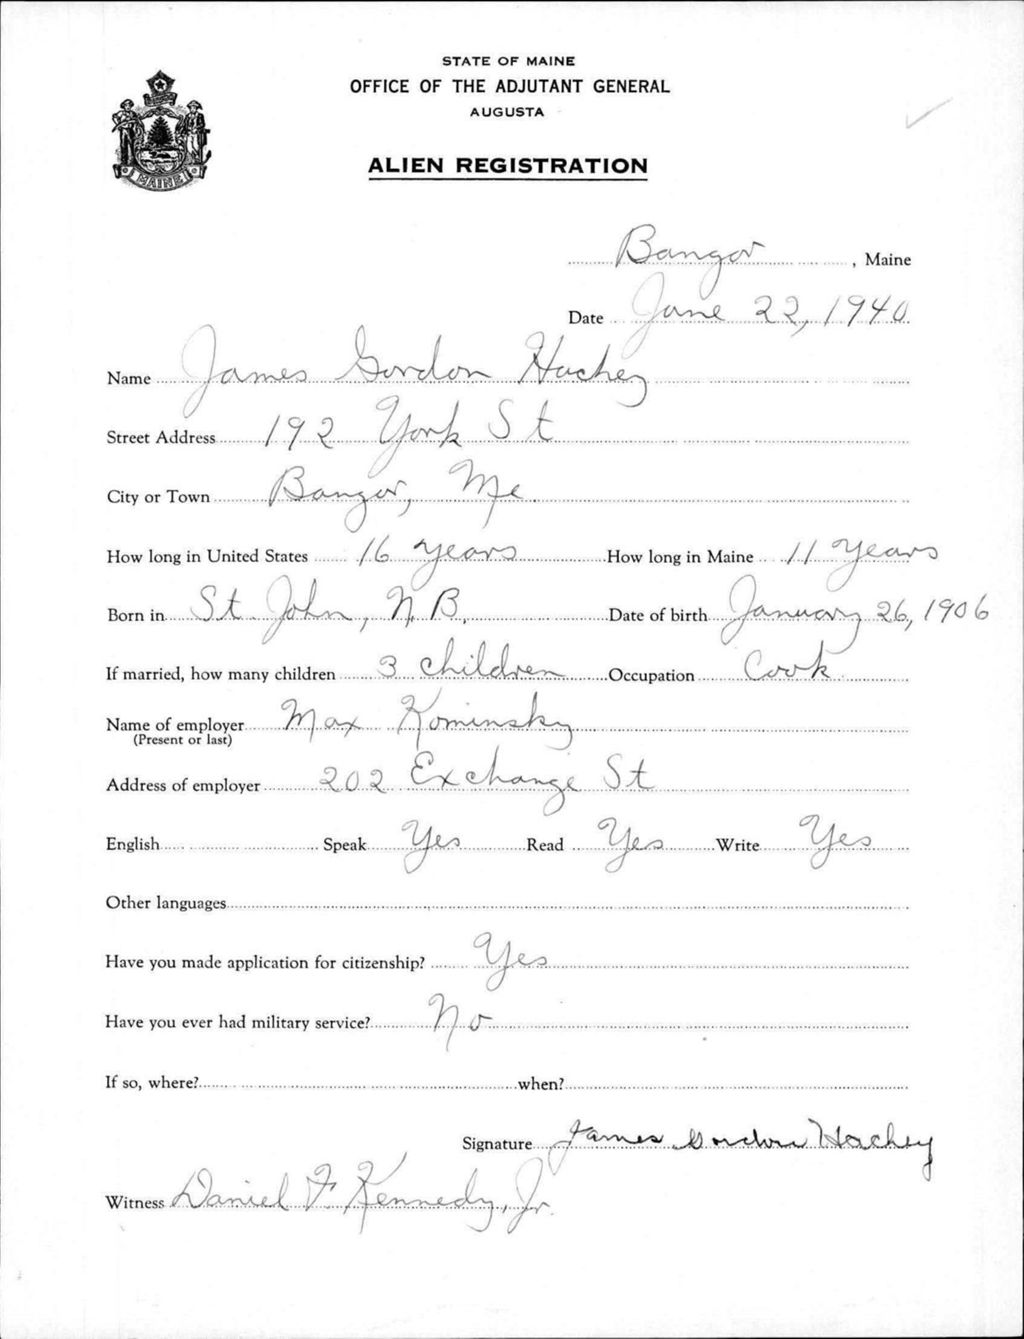 STATE OF MAINE
OFFICE OF THE ADJUTANT GENERAL
AUGUSTA
ALIEN REGISTRATION
MAINE
Bangor, Maine
Date June 22, 1940
Name James Gordon Hachey
Street Address 192 York St
City or Town Bangor, Me.
How long in United States 16 years How long in Maine 11 years
Born in St John, N.B. Date of birth January 26, 1906
If married, how many children 3 children Occupation Cook
Name of employer Max Kominsky
(Present or last)
Address of employer 202 Exchange St
English Speak Yes Read Yes Write Yes
Other languages
Have you made application for citizenship? Yes
Have you ever had military service? No
If so, where? when?
Signature James Gordon Hachey
Witness Daniel F. Kennedy, Jr.